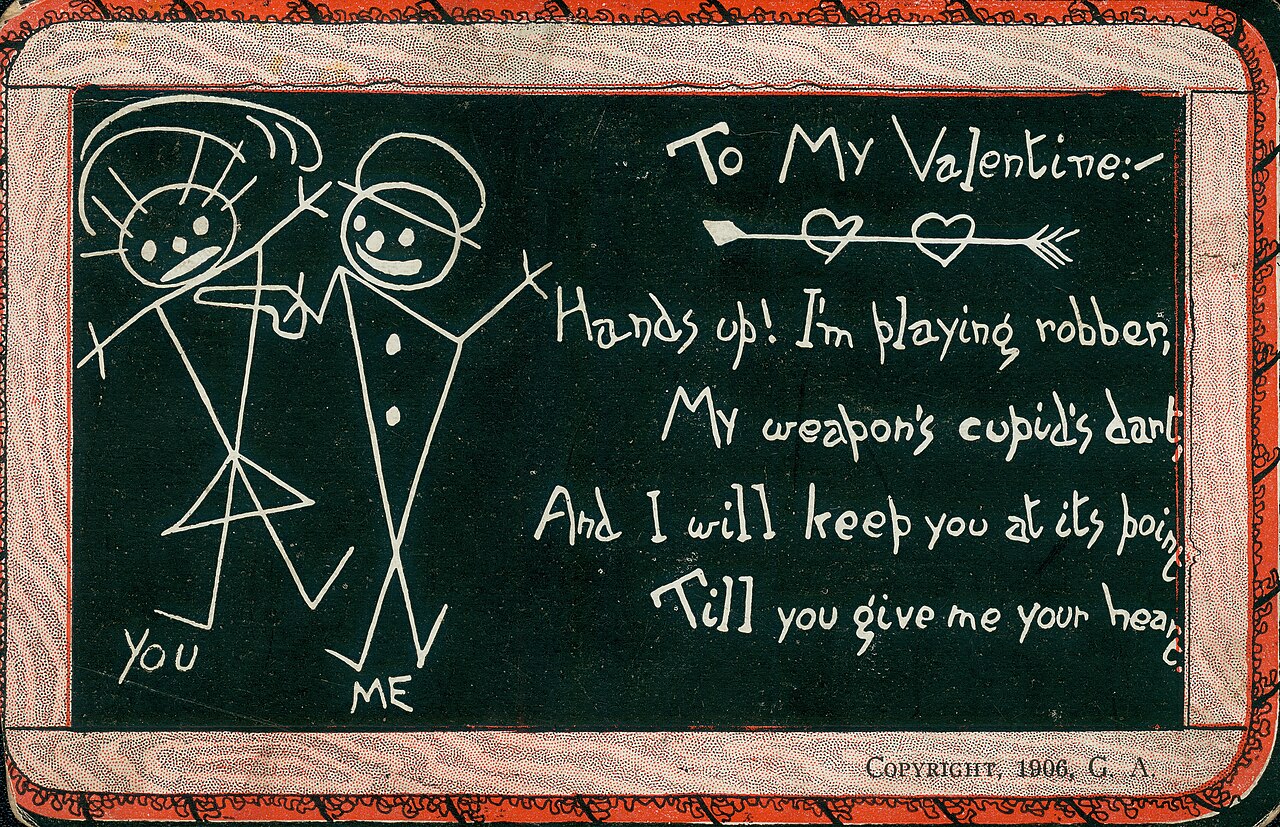 To My Valentine:-
Hands up! I'm playing robber,
My weapon's cupid's dart,
And I will keep you at its point
Till you give me your heart.
YOU
ME
COPYRIGHT, 1906, G. A.